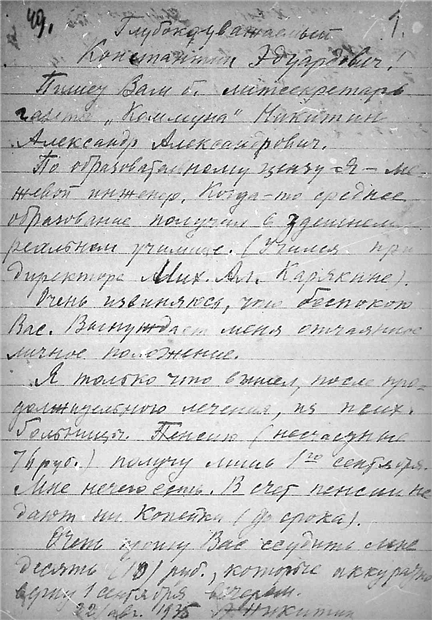 49. 1.
Глубокоуважаемый
Константин Эдуардович!
Пишет Вам б. литсекретарь
газеты „Коммуна" Никитин
Александр Александрович.
По образовательному цензу я – ме-
жевой инженер. Когда-то среднее
образование получил в здешнем
реальном училище. (Учился при
директоре Мих. Ал. Карякине).
Очень извиняюсь, что беспокою
Вас. Вынуждает меня отчаянное
личное положение.
Я только что вышел, после про-
должительного лечения, из псих.
больницы. Пенсию (несчастные
76 руб.) получу лишь 1го сентября.
Мне нечего есть. В счет пенсии не
дают ни копейки (до срока).
Очень прошу Вас ссудить мне
десять (10) руб., которые аккуратно
верну 1 сентября вечером.
22/авг. 1935 А Никитин